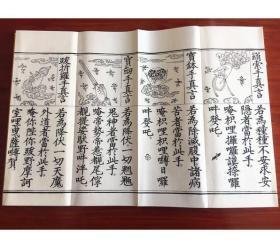 羂索手真言
若為種種不安求安
隱者當於此手
唵枳哩攞囉謨捺囉
吽癹吒
寶鉢手真言
若為除滅腹中諸病
苦者當於此手
唵枳哩枳哩嚩日囉
吽癹吒
寶劍手真言
若為降伏一切魍魎
鬼神者當於此手
唵帝勢帝惹覩尾儞
覩提婆馱野吽泮吒
跋折羅手真言
若為降伏一切天魔
外道者當於此手
唵儞陛儞陛跋野摩訶
室哩曳薩嚩賀